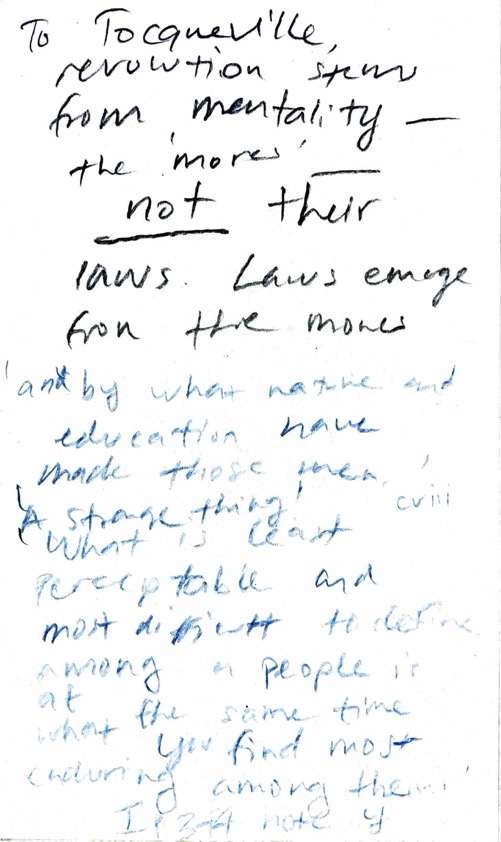 To Tocqueville,
revolution stems
from mentality —
the 'mores' —
not their
laws. Laws emerge
from the mores
'and by what nature and
education have
made those men.'
'A strange thing! cviii
What is least
perceptable and
most difficult to define
among a people is
at
what the same time
you find most
enduring among them.'
note y